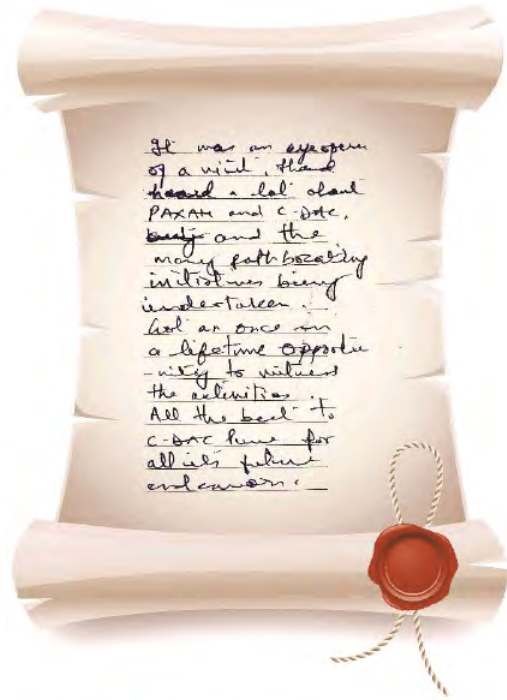 It was an eyeopener
of a visit, I had
heard a lot about
PARAM and C-DAC,
and the
many path breaking
initiatives being
undertaken.
Got an once in
a lifetime opportu
-nity to witness
the activities.
All the best to
C-DAC Pune for
all its future
endeavors.